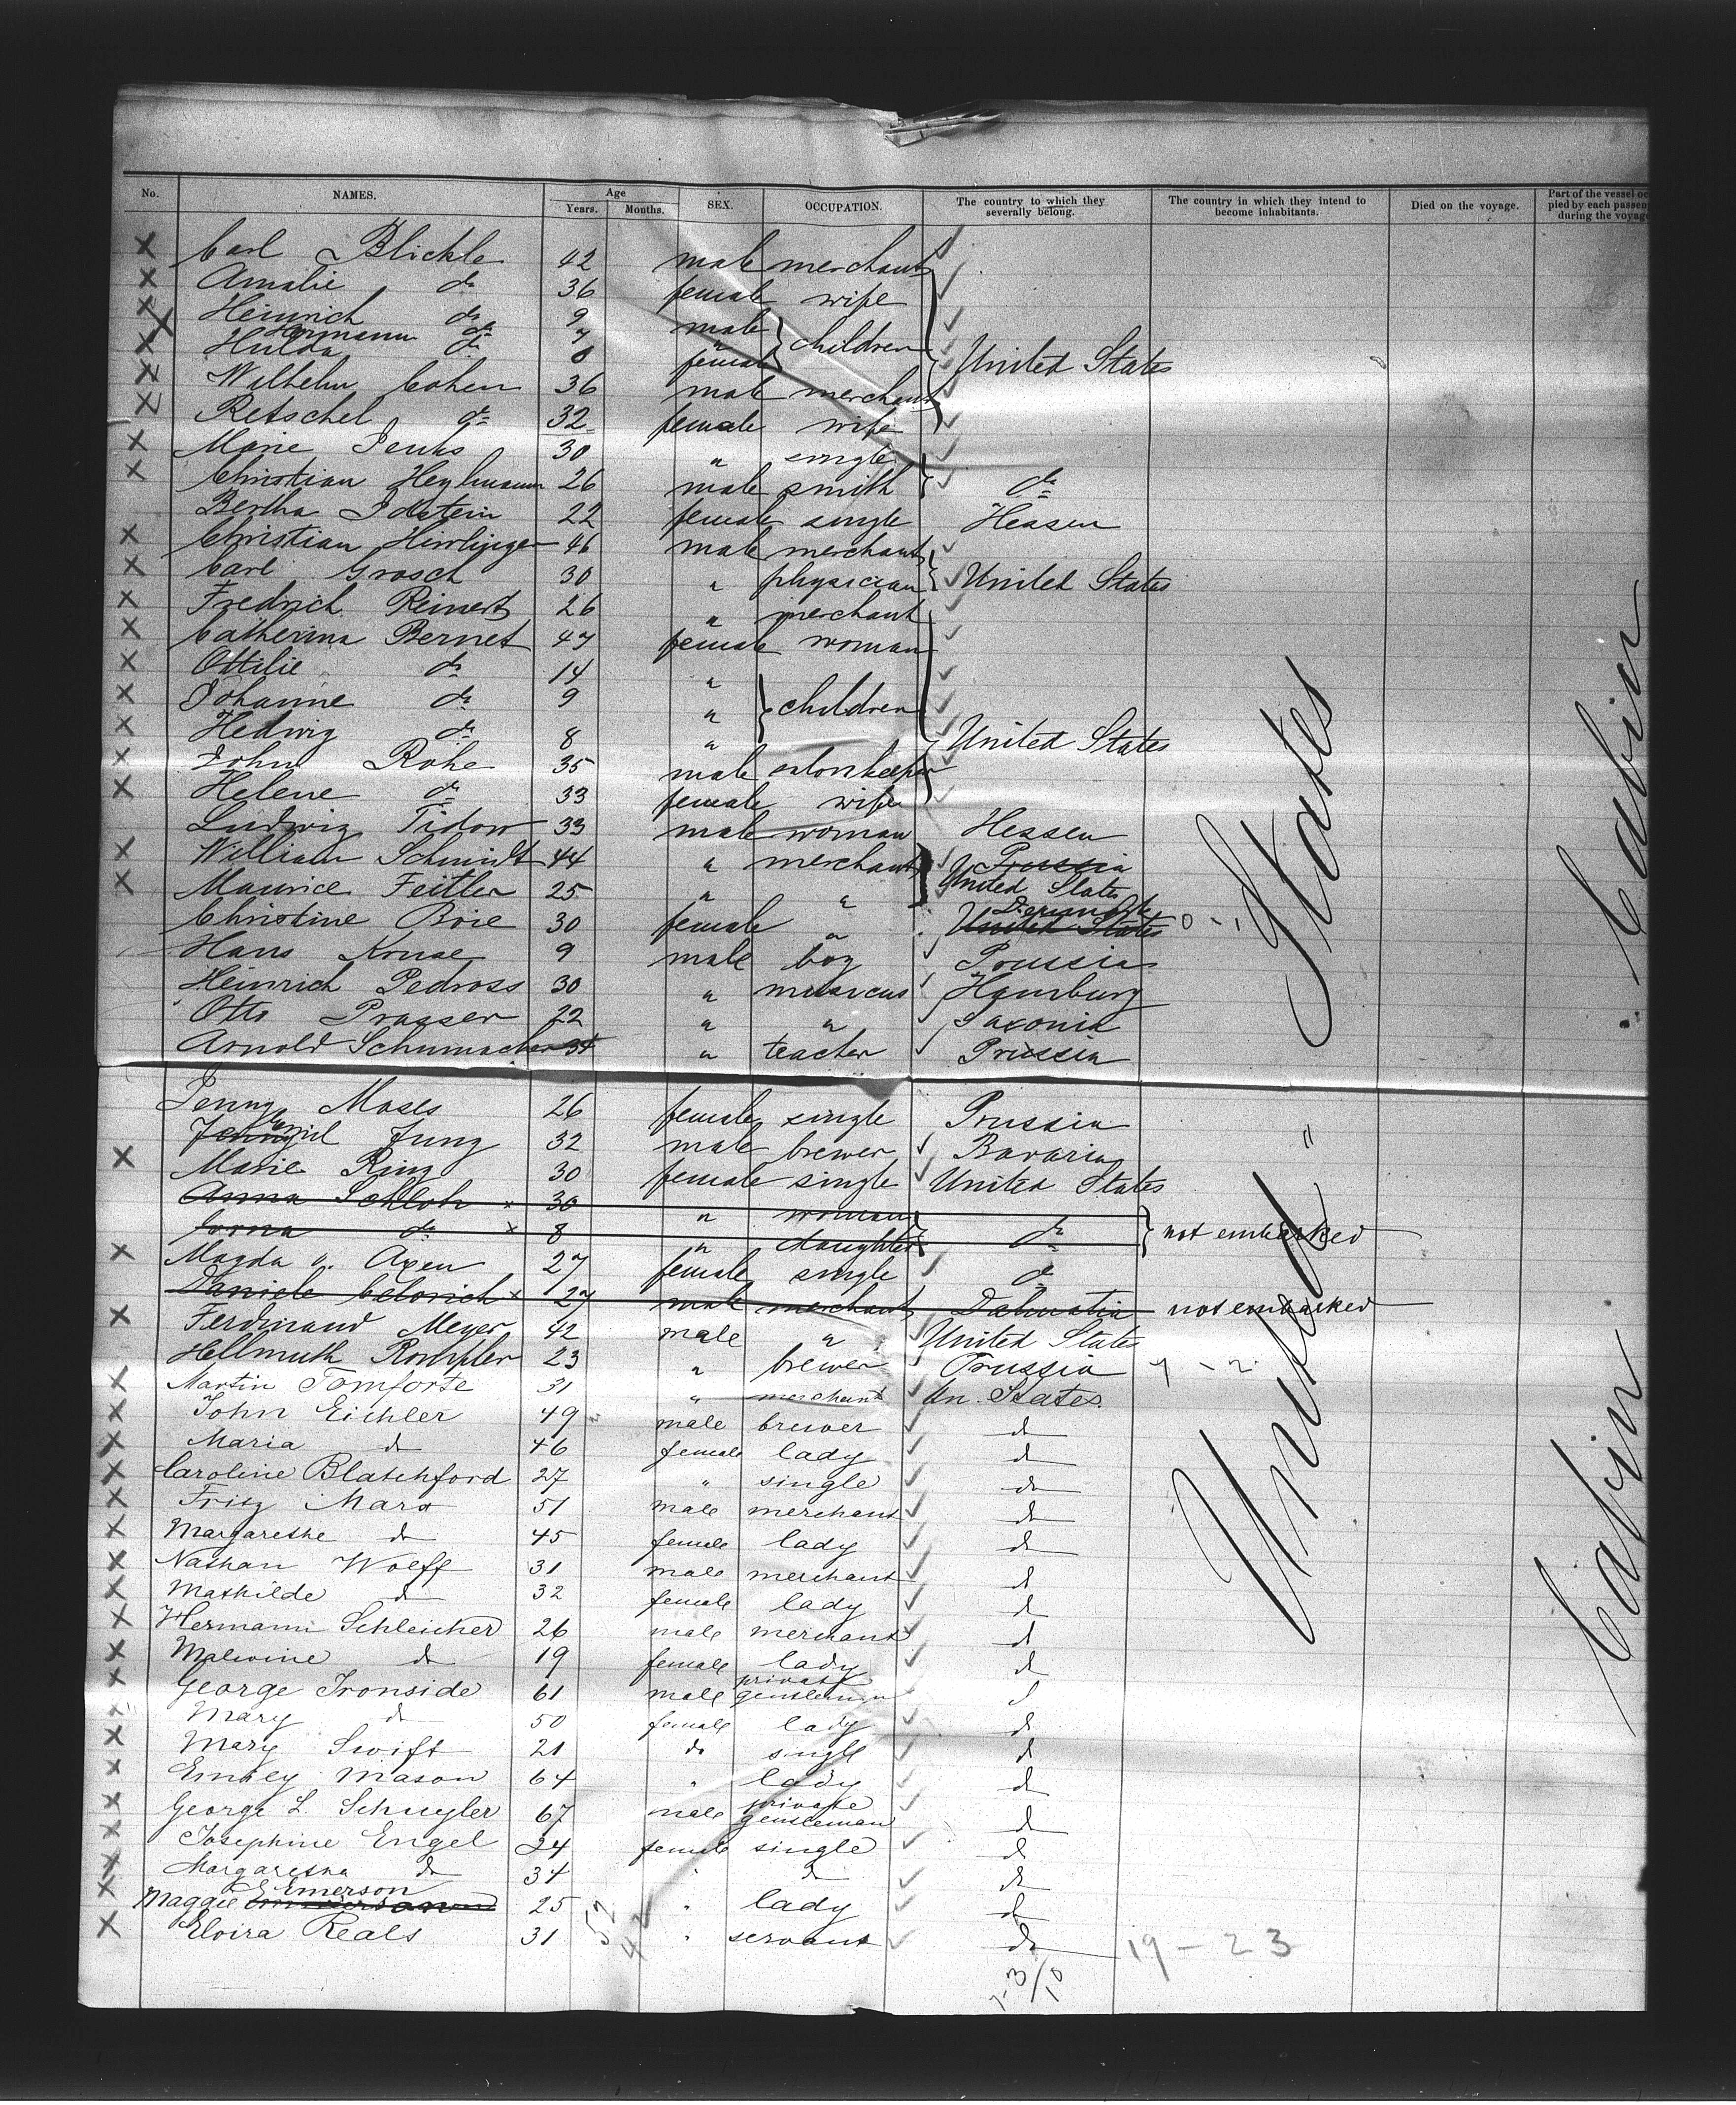 No. NAMES. Age Years. Months. SEX. OCCUPATION. The country to which they severally belong. The country in which they intend to become inhabitants. Died on the voyage. Part of the vessel oc pied by each passen during the voyage
Carl Blickle 42 male merchant
Amalie do 36 female wife
Heinrich do 9 male children
Hermann do 7 "
Hulda do female United States
Wilhelm Cohen 36 male merchant
Retschel do 32 female wife
Marie 30 " single
Christian Heylmann 26 male smith do
Bertha Idstein 22 female single Hessen
Christian 46 male merchant
Carl Grosch 30 " physician United States
Fredrich Reinert 26 " merchant
Catherina Bernet 47 female woman
Ottilie do 14 "
Johanne do 9 " children
Hedwig do 8 " United States
John Rohe 35 male salonkeeper
Helene do 33 female wife
Ludwig Tidow 33 male woman Hessen
William Schmidt 44 " merchant Prussia United States
Maurice Feitler 25 " "
Christine Boie 30 female " Denmark United States 0 - 1
Hans Kruse 9 male boy Prussia
Heinrich Pedross 30 " musicus Hamburg
Otto Prasser 22 " " Saxonia
Arnold Schumacher 34 " teacher Prussia
Jenny Moses 26 female single Prussia
Jung 32 male brewer Bavaria
Marie Ring 30 female single United States
Anna Schloh x 30 " woman
do x 8 " daughter do not embarked
Magda v. Axen 27 female single do
Daniele Celovich x 27 male merchant Dalmatia not embarked
Ferdinand Meyer 42 male " United States
Hellmuth Rompler 23 " brewer Prussia 7 - 2
Martin Tomforte 31 " merchant Un. States
John Eichler 49 male brewer do
Maria do 46 female lady do
Caroline Blatchford 27 " single do
Fritz Marx 51 male merchant do
Margarethe do 45 female lady do
Nathan Wolff 31 male merchant do
Mathilde do 32 female lady do
Hermann Schleicher 26 male merchant do
Malwine do 19 female lady do
George Ironside 61 male private gentleman do
Mary do 50 female lady do
Mary Swift 21 do single do
Emiley Mason 64 " lady do
George L. Schuyler 67 male private gentleman do
Josephine Engel 24 female single do
Margaretha do 34 " do do
Maggie Emerson 25 " lady do
Elvira Reals 31 " servant do 19 - 23
52
42
United States
"
Cabin
Cabin